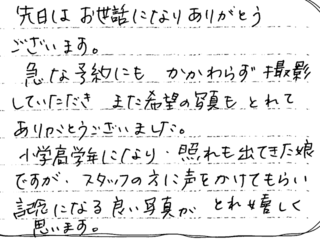 先日は お世話になりありがとう
ございます。
急な予約にも かかわらず 撮影
していただき また希望の写真も とれて
ありがとうございました。
小学高学年になり・照れも出てきた娘
ですが、スタッフの方に声をかけてもらい
記念になる良い写真が とれ嬉しく
思います。